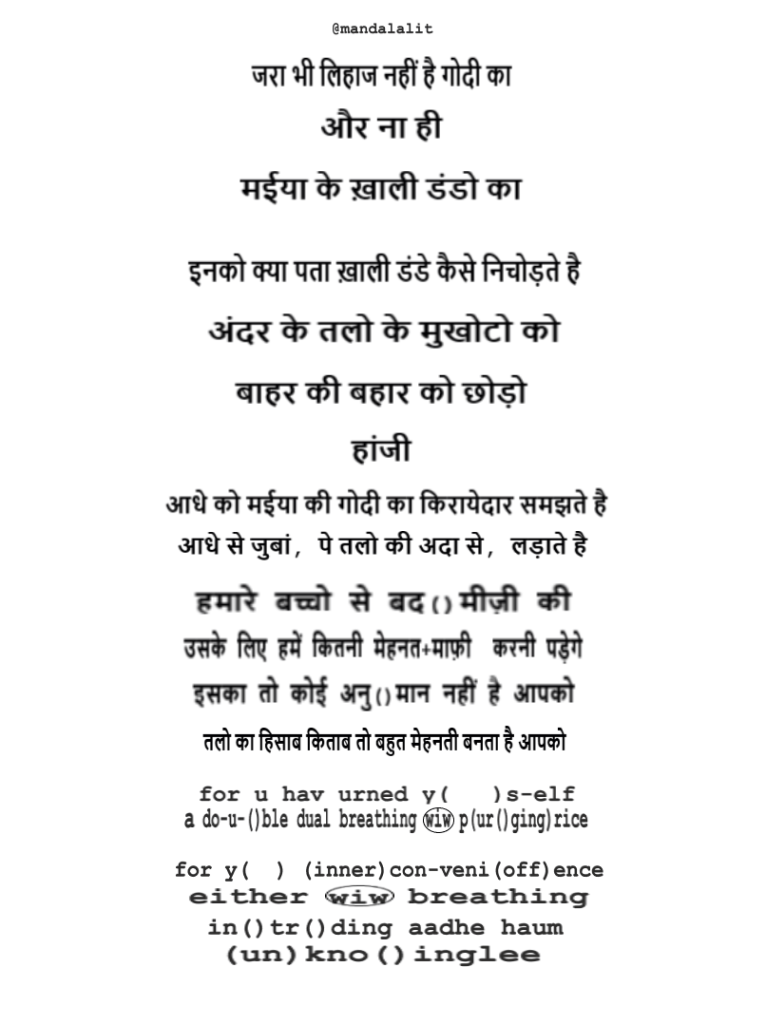 @mandalalit
जरा भी लिहाज नहीं है गोदी का
और ना ही
मईया के ख़ाली डंडो का
इनको क्या पता ख़ाली डंडे कैसे निचोड़ते है
अंदर के तलो के मुखोटो को
बाहर की बहार को छोड़ो
हांजी
आधे को मईया की गोदी का किरायेदार समझते है
आधे से जुबां, पे तलो की अदा से, लड़ाते है
हमारे बच्चो से बद()मीज़ी की
उसके लिए हमें कितनी मेहनत+माफ़ी करनी पड़ेगे
इसका तो कोई अनु()मान नहीं है आपको
तलो का हिसाब किताब तो बहुत मेहनती बनता है आपको
for u hav urned y(   )s-elf
a do-u-()ble dual breathing wiw p(ur()ging)rice
for y(  ) (inner)con-veni(off)ence
either wiw breathing
in()tr()ding aadhe haum
(un)kno()inglee